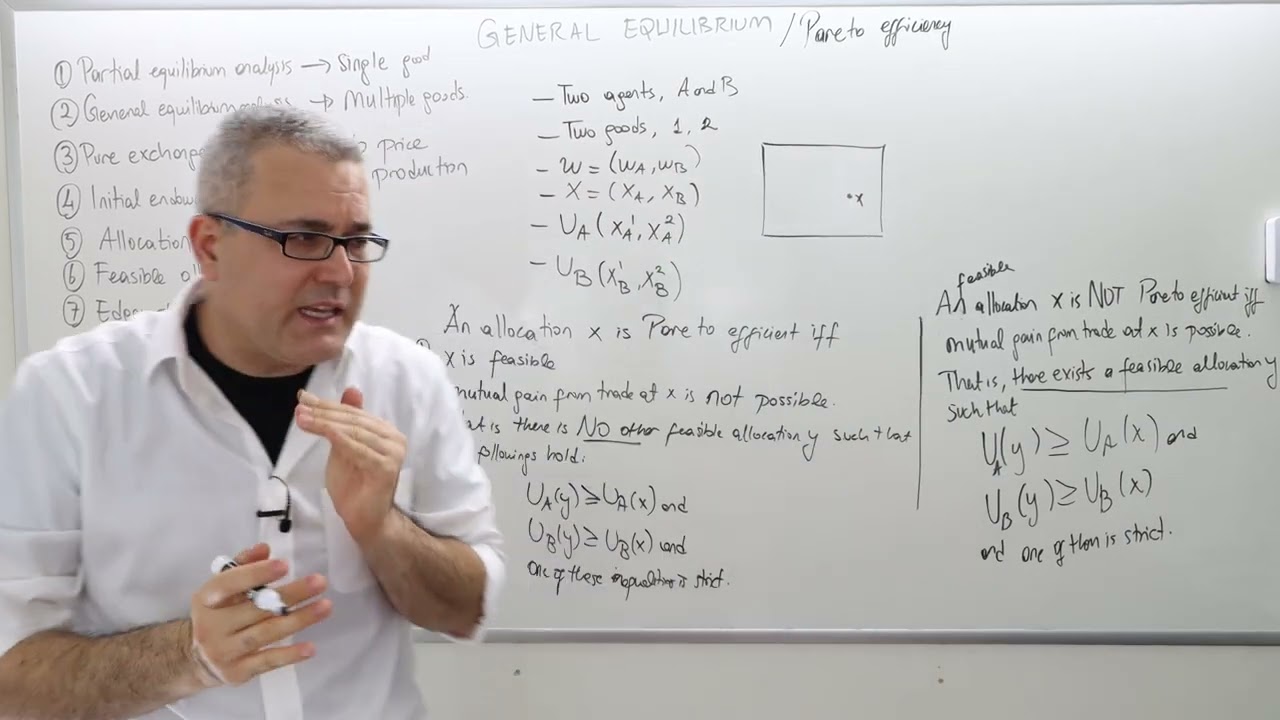 GENERAL EQUILIBRIUM / Pareto efficiency
① Partial equilibrium analysis → Single good
② General equilibrium analysis → Multiple goods.
③ Pure exchang
price
production
④ Initial endow
⑤ Allocation
⑥ Feasible al
⑦ Edge
— Two agents, A and B
— Two goods, 1, 2
— w = (wA, wB)
— X = (XA, XB)
— UA(XA¹, XA²)
— UB(XB¹, XB²)
• x
An allocation x is Pareto efficient iff
x is feasible
mutual gain from trade at x is not possible.
at is there is NO other feasible allocation y such that
followings hold:
UA(y) ≥ UA(x) and
UB(y) ≥ UB(x) and
one of these inequalities is strict.
feasible
A allocation x is NOT Pareto efficient iff
mutual gain from trade at x is possible.
That is, there exists a feasible allocation y
such that
UA(y) ≥ UA(x) and
UB(y) ≥ UB(x)
and one of them is strict.